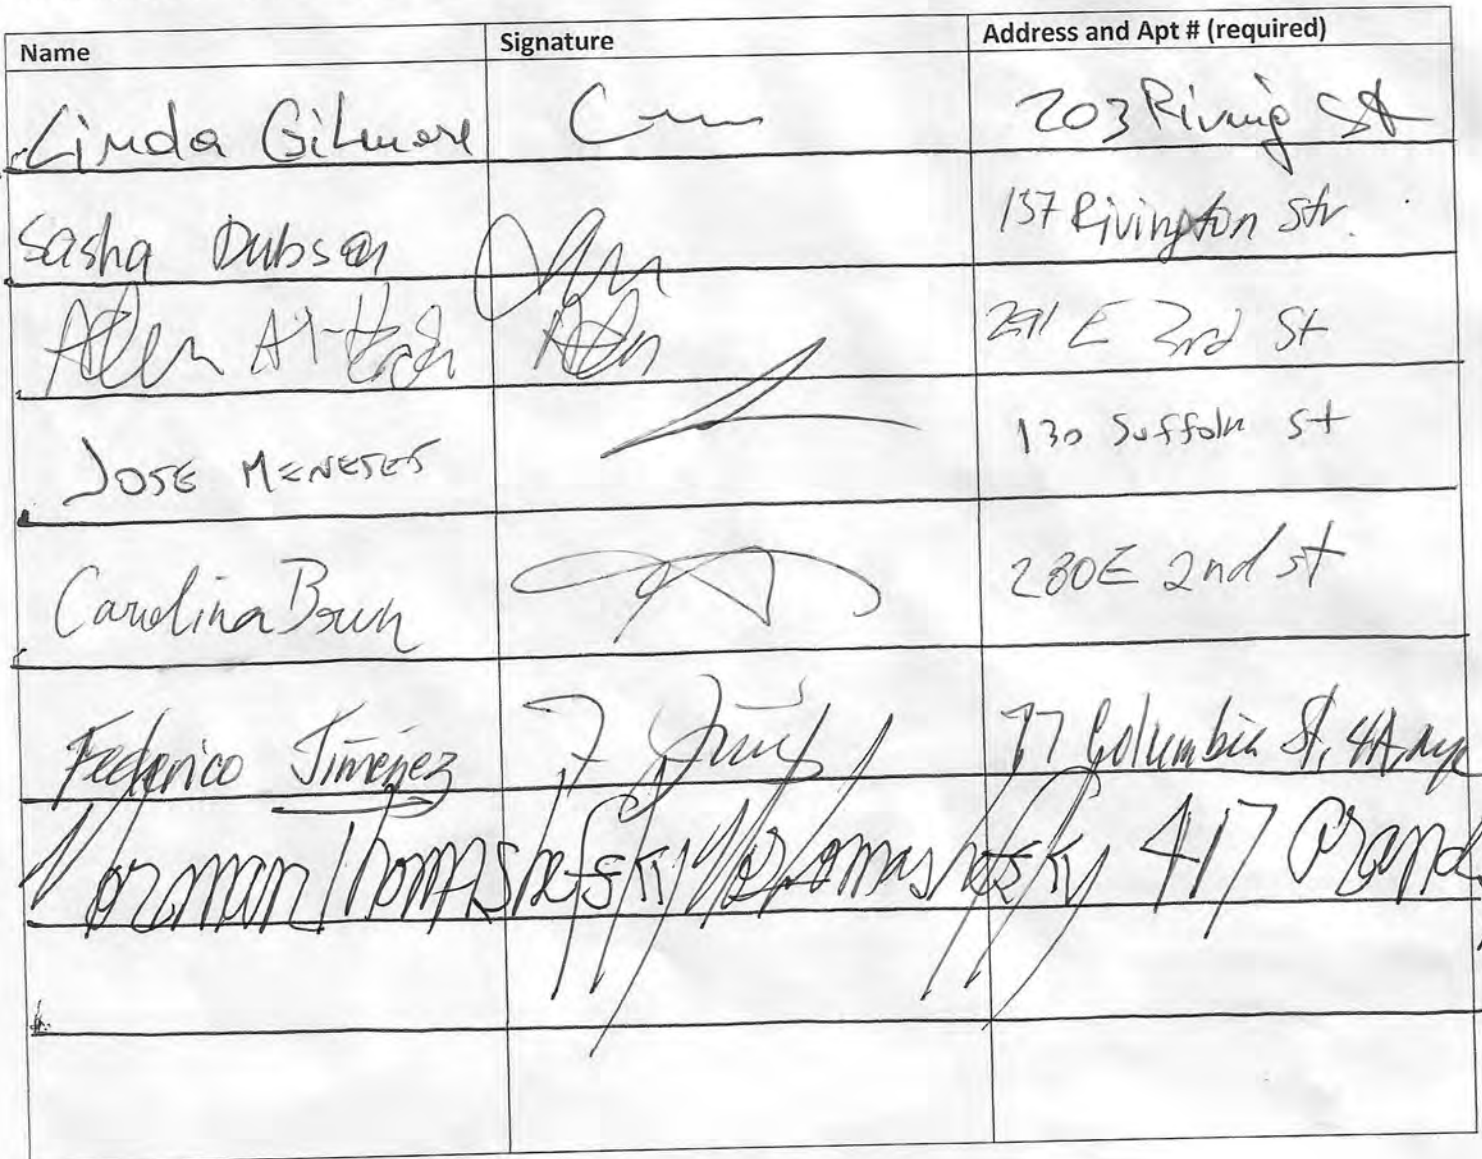 Name Signature Address and Apt # (required)
Linda Gilmore 203 Riving St
Sasha Dubson 137 Rivington Str.
E 3rd St
JOSE MENESES 130 Suffolk St
Carolina 280 E 2nd st
Federico Jimenez F Jimenez 77 Columbia St, 4A nyc
Norman Thomashefsky N Thomashefsky 417 Grand